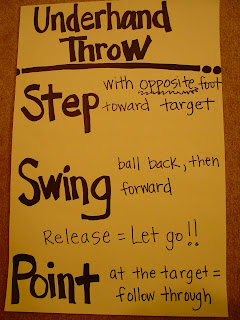 Underhand
Throw
Step with opposite foot
toward target
Swing ball back, then
forward
Release = Let go!!
Point at the target =
follow through